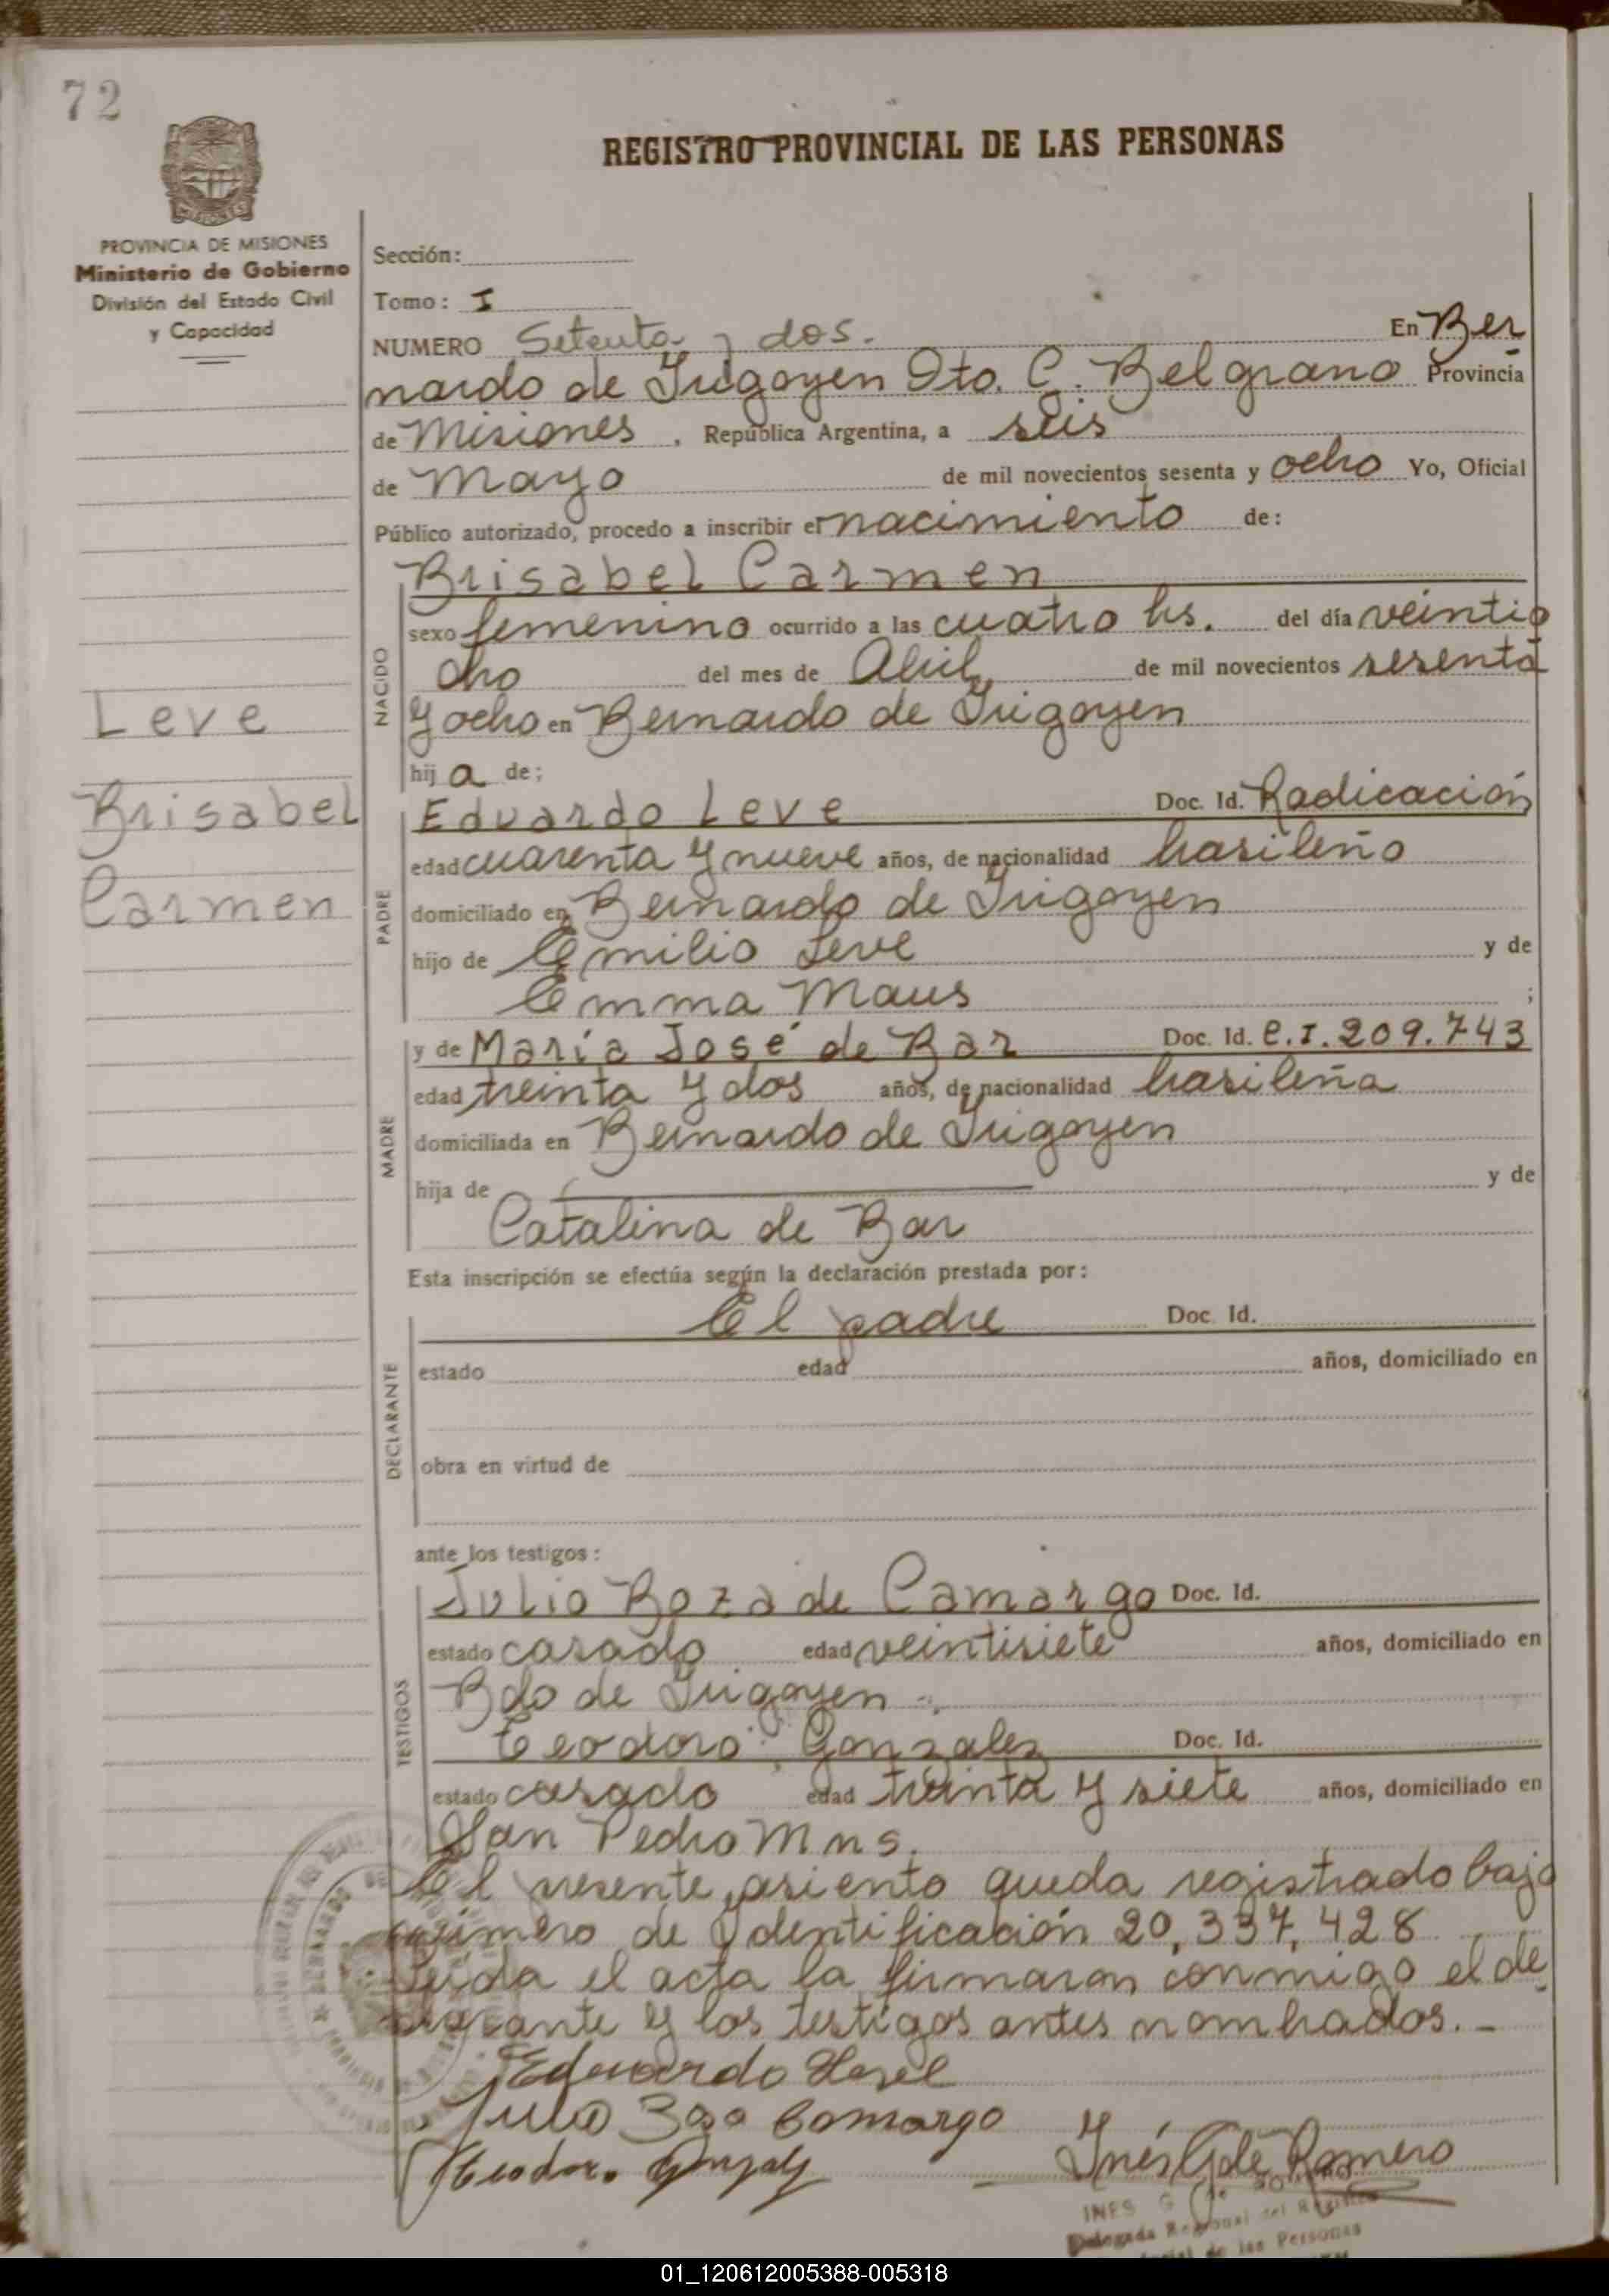 72
REGISTRO PROVINCIAL DE LAS PERSONAS
MISIONES
PROVINCIA DE MISIONES
Ministerio de Gobierno
División del Estado Civil
y Capacidad
Sección:
Tomo: I
NUMERO Setenta y dos. En Ber
nardo de Irigoyen Dto. G. Belgrano Provincia
de Misiones, República Argentina, a seis
de Mayo de mil novecientos sesenta y ocho Yo, Oficial
Público autorizado, procedo a inscribir el nacimiento de:
Brisabel Carmen
NACIDO
sexo femenino ocurrido a las cuatro hs. del día veintio
cho del mes de Abril de mil novecientos sesenta
y ocho en Bernardo de Irigoyen
hija de;
Leve
Brisabel
Carmen
PADRE
Eduardo Leve Doc. Id. Radicación
edad cuarenta y nueve años, de nacionalidad brasileño
domiciliado en Bernardo de Irigoyen
hijo de Emilio Leve y de
Emma Maus ;
MADRE
y de María José de Bar Doc. Id. C.I. 209.743
edad treinta y dos años, de nacionalidad brasileña
domiciliada en Bernardo de Irigoyen
hija de y de
Catalina de Bar
Esta inscripción se efectúa según la declaración prestada por:
DECLARANTE
El padre Doc. Id.
estado edad años, domiciliado en
obra en virtud de
ante los testigos:
TESTIGOS
Julio Boza de Camargo Doc. Id.
estado casado edad veintisiete años, domiciliado en
Bdo de Irigoyen
Teodoro Gonzalez Doc. Id.
estado casado edad treinta y siete años, domiciliado en
San Pedro Mns.
El presente asiento queda registrado bajo
número de Identificación 20,337,428
Leida el acta la firmaron conmigo el de
clarante y los testigos antes nombrados.-
Eduardo
Julio Camargo
Teodoro
Inés G de Romero
INES G de ROMERO
Delegada Regional del Registro
de las Personas
01_120612005388-005318